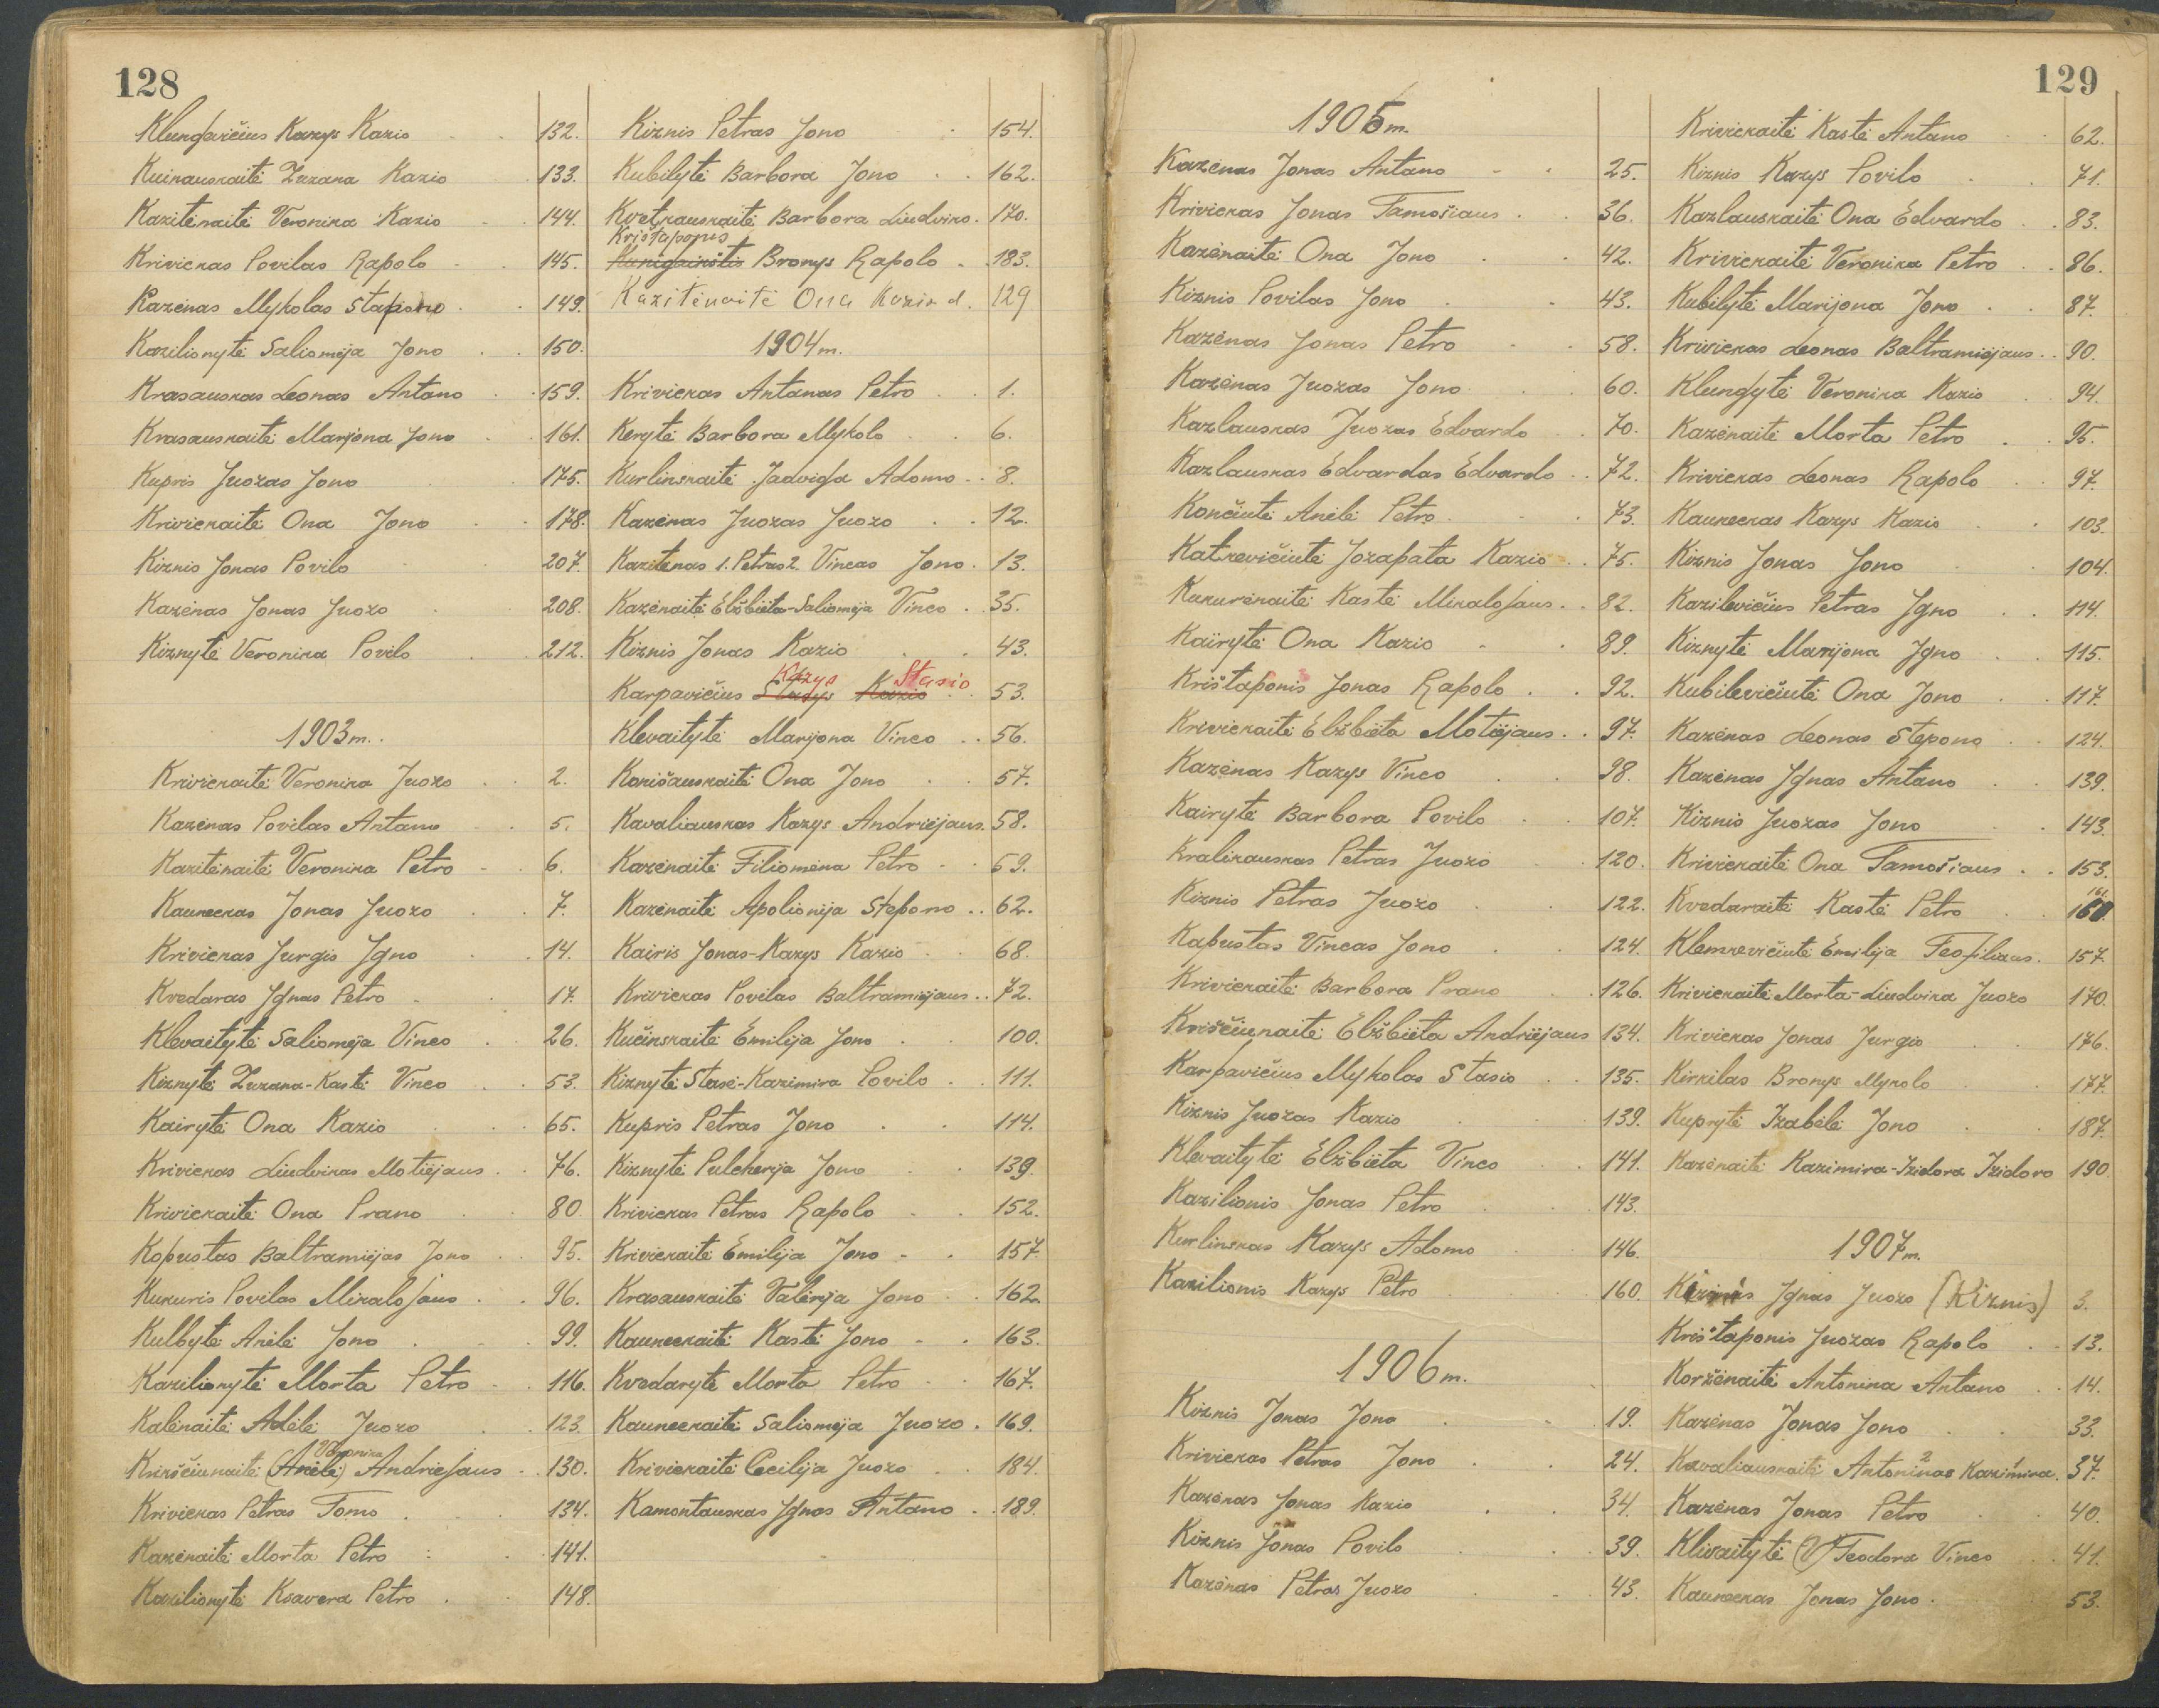 128
Klungevičius Kazys Kazio 132.
Kuinauskaitė Zuzana Kazio 133.
Kazitėnaitė Veronika Kazio 144.
Krivickas Povilas Rapolo 145.
Kazėnas Mykolas Stepono 149.
Kazilionytė Saliomėja Jono 150.
Krasauskas Leonas Antano 159.
Krasauskaitė Marijona Jono 161.
Kupris Juozas Jono 175.
Krivickaitė Ona Jono 178.
Kiznis Jonas Povilo 207.
Kazėnas Jonas Juozo 208.
Kiznytė Veronika Povilo 212.
1903 m.
Krivickaitė Veronika Juozo 2.
Kazėnas Povilas Antano 5.
Kazitėnaitė Veronika Petro 6.
Kauneckas Jonas Juozo 7.
Krivickas Jurgis Igno 14.
Kvedaras Ignas Petro 17.
Klevaitytė Saliomėja Vinco 26.
Kiznytė Zuzana-Kastė Vinco 53.
Kairytė Ona Kazio 65.
Krivickas Liudvikas Motiejaus 76.
Krivickaitė Ona Prano 80.
Kopustas Baltramiejas Jono 95.
Kukuris Povilas Mikalojaus 96.
Kulbytė Anėlė Jono 99.
Kazilionytė Morta Petro 116.
Kalėnaitė Adėlė Juozo 123.
Veronika
Krikščiunaitė (Anėlė) Andriejaus 130.
Krivickas Petras Tomo 134.
Kazėnaitė Morta Petro 141.
Kazilionytė Ksavera Petro 148.
Kiznis Petras Jono 154.
Kubilytė Barbora Jono 162.
Kvetkauskaitė Barbora Liudviko 170.
Kristaponis
Kunigaikštis Bronys Rapolo 183.
Kazitėnaitė Ona Kazio d. 129
1904 m.
Krivickas Antanas Petro 1.
Kerytė Barbora Mykolo 6.
Kurlinskaitė Jadviga Adomo 8.
Kazėnas Juozas Juozo 12.
Kazitėnas 1. Petras 2. Vincas Jono 13.
Kazėnaitė Elžbieta-Saliomėja Vinco 35.
Kiznis Jonas Kazio 43.
Kazys Stasio
Karpavičius Stasys Kazio 53.
Klevaitytė Marijona Vinco 56.
Konišauskaitė Ona Jono 57.
Kavaliauskas Kazys Andriejaus 58.
Kazėnaitė Filiomena Petro 59.
Kazėnaitė Apolionija Stepono 62.
Kairis Jonas-Kazys Kazio 68.
Krivickas Povilas Baltramiejaus 72.
Kučinskaitė Emilija Jono 100.
Kiznytė Stasė-Kazimira Povilo 111.
Kupris Petras Jono 114.
Kiznytė Pulcherija Jono 139.
Krivickas Petras Rapolo 152.
Krivickaitė Emilija Jono 157.
Krasauskaitė Valerija Jono 162.
Kauneckaitė Kastė Jono 163.
Kvedarytė Morta Petro 167.
Kauneckaitė Saliomėja Juozo 169.
Krivickaitė Cecilija Juozo 184.
Kamontauskas Ignas Antano 189.
129
1905 m.
Kazėnas Jonas Antano 25.
Krivickas Jonas Tamošiaus 36.
Kazėnaitė Ona Jono 42.
Kiznis Povilas Jono 43.
Kazėnas Jonas Petro 58.
Kazėnas Juozas Jono 60.
Kazlauskas Juozas Edvardo 70.
Kazlauskas Edvardas Edvardo 72.
Končiutė Anėlė Petro 73.
Katkevičiutė Jozapata Kazio 75.
Kukurėnaitė Kastė Mikalojaus 82.
Kairytė Ona Kazio 89.
Krištaponis Jonas Rapolo 92.
Krivickaitė Elžbieta Motiejaus 97.
Kazėnas Kazys Vinco 98.
Kairytė Barbora Povilo 107.
Kralikauskas Petras Juozo 120.
Kiznis Petras Juozo 122.
Kapustas Vincas Jono 124.
Krivickaitė Barbora Prano 126.
Kriščiunaitė Elžbieta Andriejaus 134.
Karpavičius Mykolas Stasio 135.
Kiznis Juozas Kazio 139.
Klevaitytė Elžbieta Vinco 141.
Kazilionis Jonas Petro 143.
Kurlinskas Kazys Adomo 146.
Kazilionis Kazys Petro 160.
1906 m.
Kiznis Jonas Jono 19.
Krivickas Petras Jono 24.
Kazėnas Jonas Kazio 34.
Kiznis Jonas Povilo 39.
Kazėnas Petras Juozo 43.
Krivickaitė Kastė Antano 62.
Kiznis Kazys Povilo 71.
Kazlauskaitė Ona Edvardo 83.
Krivickaitė Veronika Petro 86.
Kubilytė Marijona Jono 87.
Krivickas Leonas Baltramiejaus 90.
Klungytė Veronika Kazio 94.
Kazėnaitė Morta Petro 95.
Krivickas Leonas Rapolo 97.
Kauneckas Kazys Kazio 103.
Kiznis Jonas Jono 104.
Kazilevičius Petras Igno 114.
Kiznytė Marijona Igno 115.
Kubilevičiutė Ona Jono 117.
Kazėnas Leonas Stepono 124.
Kazėnas Ignas Antano 139.
Kiznis Juozas Jono 143.
Krivickaitė Ona Tamošiaus 153.
Kvedaraitė Kastė Petro 160.
Klemkevičiutė Emilija Teofiliaus 157.
Krivickaitė Morta-Liudvika Juozo 170.
Krivickas Jonas Jurgio 176.
Kirkilas Bronys Mykolo 177.
Kuprytė Izabėlė Jono 187.
Kazėnaitė Kazimira-Izidora Izidoro 190.
1907 m.
Kiznis Ignas Juozo (Kiznis) 3.
Krištaponis Juozas Rapolo 13.
Koržėnaitė Antonina Antano 14.
Kazėnas Jonas Jono 33.
Kavaliauskaitė Antoninos 2 Kazimira 1 37.
Kazėnas Jonas Petro 40.
Klivaitytė (V) Teodora Vinco 41.
Kauneckas Jonas Jono 53.